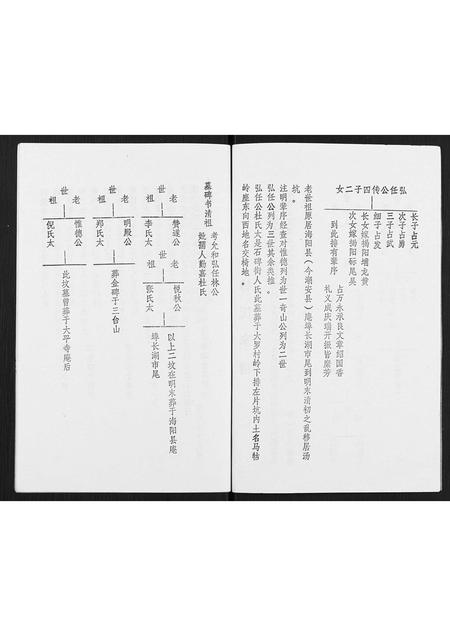 弘任公传四子二女
长子占元
次子占勇
三子占武
细子占发
长女嫁揭阳塯龙黄
次女嫁揭阳标尾吴
到此排有辈序
占万永承良文章绍国香
礼义成庆瑞开振皆荣芳
老世祖原居海阳县(今潮安县)庵埠长湖市尾到明末清初之乱移居汤
坑。
注明辈序经查对惟德列为世一奇山公列为二世
弘任公列为三世其余类推。
弘任公杜氏太是石碑街人氏此墓葬于大罗村岭下排左片坑内土名马牯
岭座东向西地名交椅地。
墓碑书清祖
考允和弘任林公
妣孺人勤嘉杜氏
老世祖
赞遂公
李氏太
老世祖
悦秋公
张氏太
以上二坟在明末葬于海阳县庵
埠长湖市尾
老世祖
明殿公
郑氏太
葬金碑于三台山
老世祖
惟德公
倪氏太
此坟墓曾葬于大平寺庵后